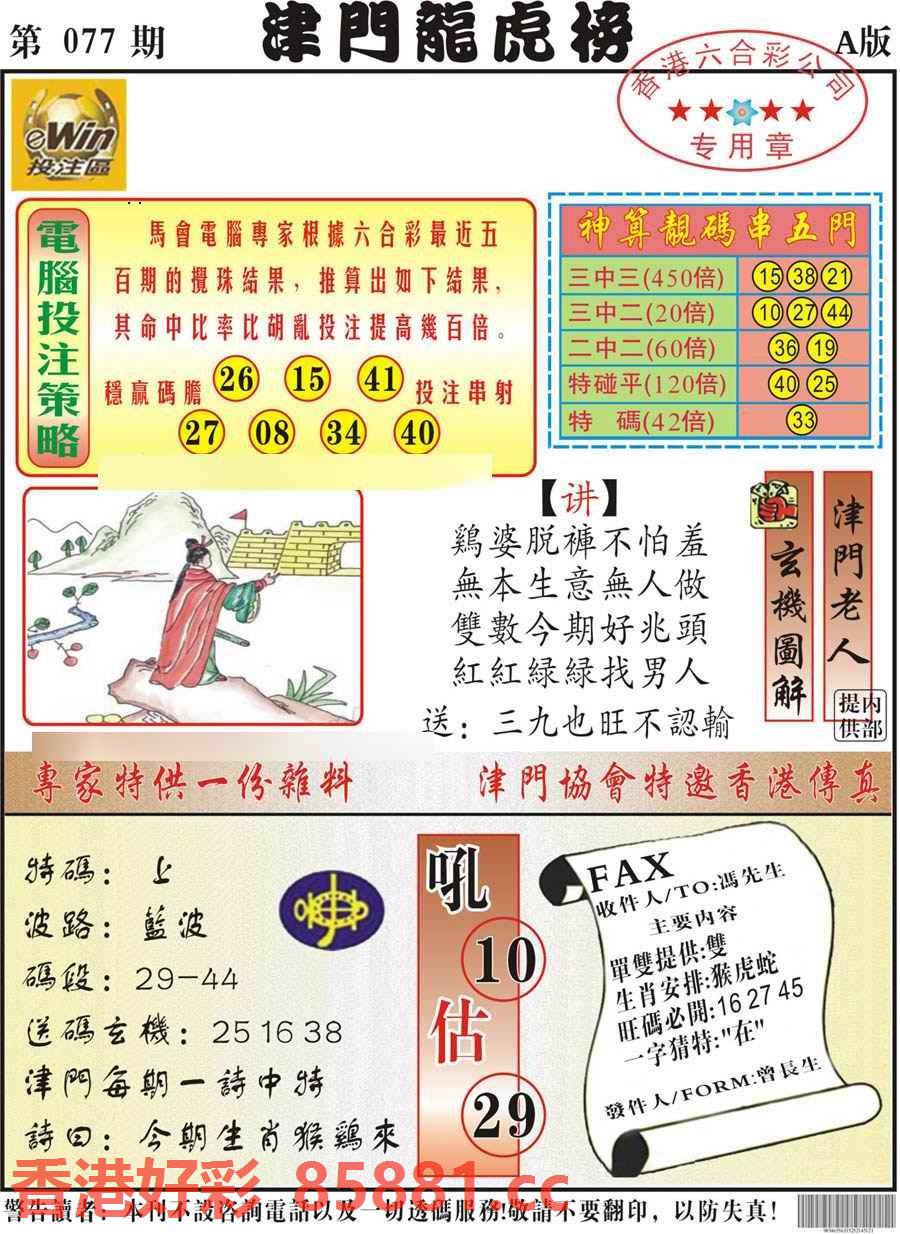 第 077 期
津門龍虎榜
A版
香港六合彩公司
★★★★
专用章
eWin
投注區
電腦投注策略
馬會電腦專家根據六合彩最近五
百期的攪珠結果，推算出如下結果，
其命中比率比胡亂投注提高幾百倍。
穩贏碼膽 26 15 41 投注串射
27 08 34 40
神算靚碼串五門
三中三(450倍) 15 38 21
三中二(20倍) 10 27 44
二中二(60倍) 36 19
特碰平(120倍) 40 25
特 碼(42倍) 33
【讲】
鷄婆脱褲不怕羞
無本生意無人做
雙數今期好兆頭
紅紅緑緑找男人
送：三九也旺不認輸
玄機圖解
津門老人
内部提供
專家特供一份雜料
津門協會特邀香港傳真
特碼：上
波路：藍波
碼段：29-44
送碼玄機：25 16 38
津門每期一詩中特
詩曰：今期生肖猴鷄來
吼
10
估
29
FAX
收件人/TO:馮先生
主要内容
單雙提供:雙
生肖安排:猴虎蛇
旺碼必開:16 27 45
一字猜特:"在"
發件人/FORM:曾長生
香港好彩 85881.cc
警告讀者：本刊不設咨詢電話以及一切透碼服務!敬請不要翻印，以防失真!